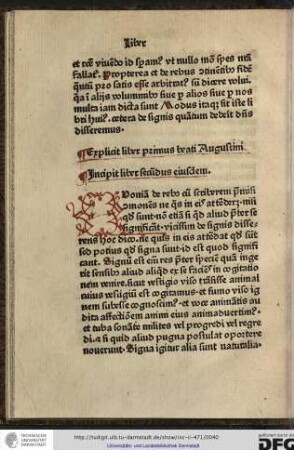 Liber
et rectē viuēdo id speam⁹. vt nullo mō spes nr̄a
fallat². Propterea et de rebus ɔtinētib⁹ fidē
quātū pro satis esse arbitrat⁹ suꝫ dicere volui.
qꝛ ī alijs voluminib⁹ siue p alios siue p nos
multa iam dicta sunt Modus itaqꝫ sit iste li
bri hui⁹. cetera de signis quātum dederit dn̄s
disseremus.
¶Explicit liber primus beati Augustini
¶Incipit liber secūdus eiusdem.
Quoniā de rebꝰ cū scriberem p̄misi
ōmonens ne qͥs in eis attēderꝫ nisi
qd sunt nō etiā si qd aliud p̄ter se
significāt. vicissim de signis disse⸗
rens hoc dico. ne quis in eis attēdat qd sūt
sed potius qd signa sunt id est quod signifi
cant. Signū est eiꝰ res p̄ter speciē quā inge
rit sensib⁹ aliud aliqd ex se faciēs in cogitatio
nem venire. sicut vestigio viso trāsisse animal
cuius vestigiū est cogitamus. et fumo viso ig
nem subesse cognoscim⁹. et voce animātis au
dita affectiōem animi eius animaduertim⁹.
et tuba sonāte milites vel progredi vel regre
di. a si quid aliud pugna postulat oportere
nouerunt. Signa igitur alia sunt naturalia.
TECHNISCHE UNIVERSITÄT DARMSTADT
http://tudigit.ulb.tu-darmstadt.de/show/inc-ii-471/0040
Universitäts- und Landesbibliothek Darmstadt
gefördert durch die
DFG